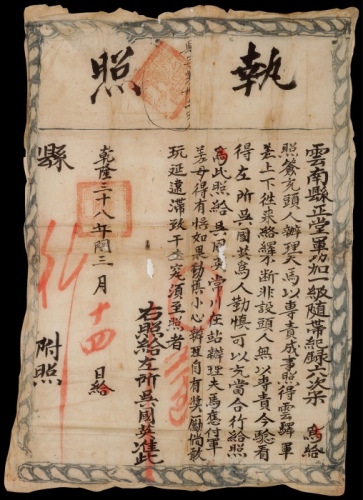 執照
雲南縣正堂軍功加一級隨帶紀録六次宋 為給
照飭充頭人辦理夫馬以專責成事照得雲驛軍
差上下徃來絡繹不断非設頭人無以專責今驗看
得左所吳國英為人勤慎可以充當合行給照
為此照給吳國英常川在站辦理夫馬應付軍
差毋得有悞如果勤慎小心辦理自有奬勵倘敢
玩延遲滞致干查究須至照者
右照給左所吳國英准此
乾隆三十八年閏三月十四日給
縣 附照